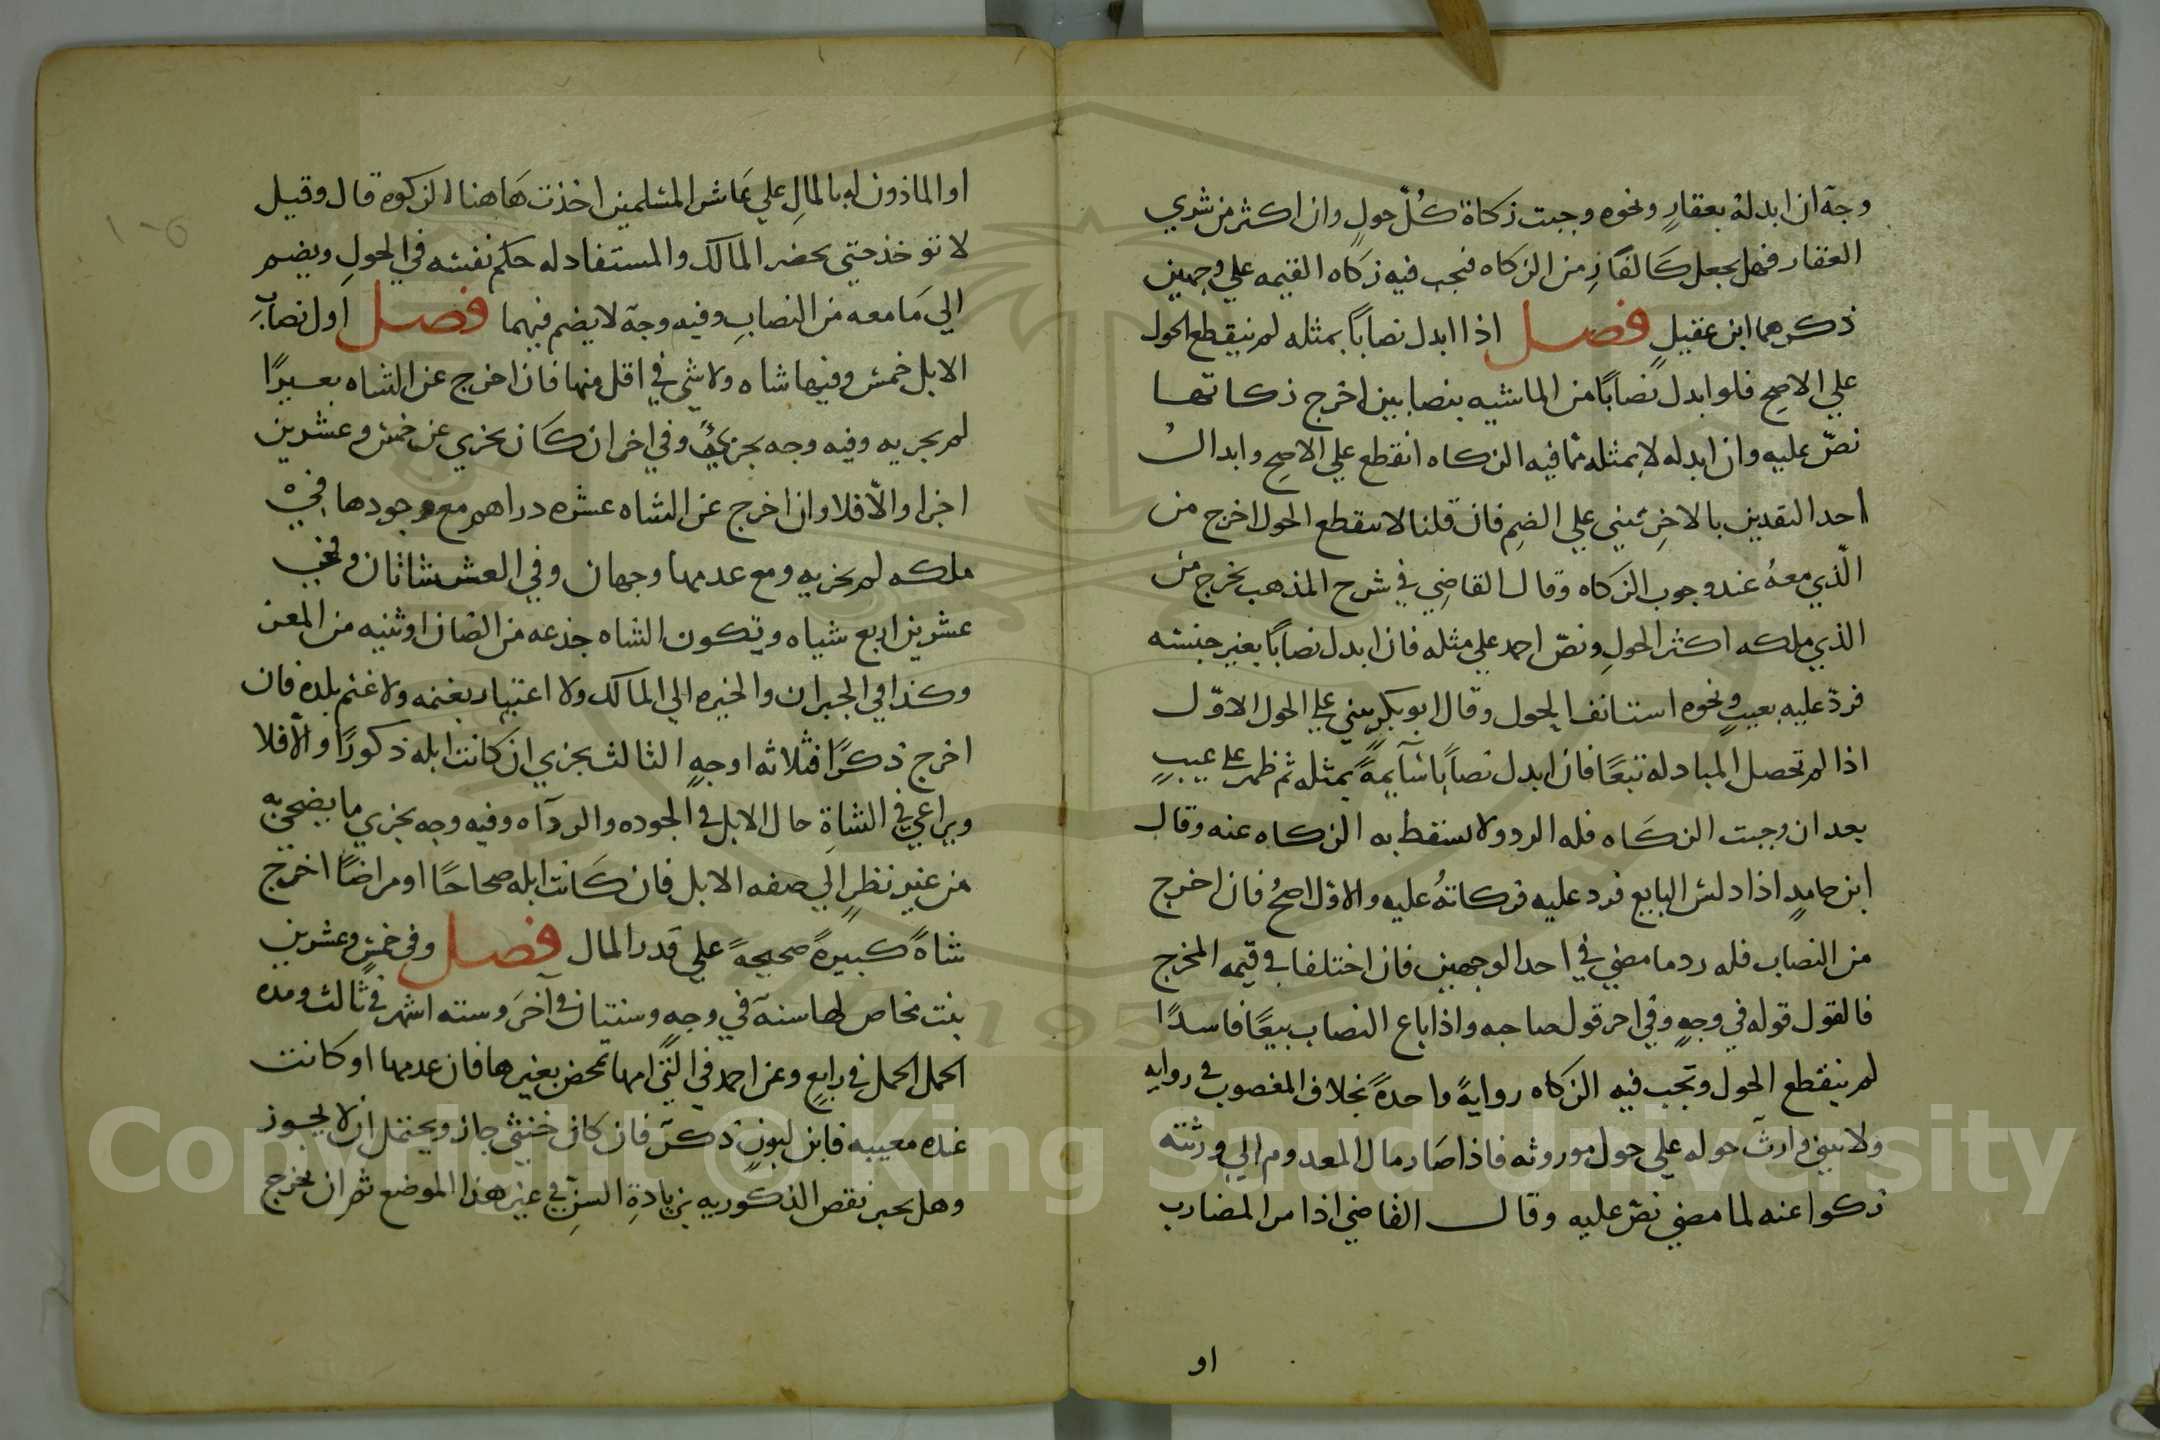 وجه ان ابدله بعقارٍ ونحوه وجبت زكاة كُلّ حولٍ وان اكثر من شري
العقار فهل يجعل كَالفَارّ من الزكاه فتجب فيه زكَاه القيمه علي وجهين
ذكرهما ابن عقيلٍ فصل اذا ابدل نصاباً بمثله لم ينقطع الحول
علي الاصح فلو ابدل نصَابًا من الماشيه بنصابين اخرج زكاتهما
نصّ عليه وان ابدله لا بمثله مما فيه الزكاه انقطع علي الاصح وابدال
احد النقدين بالاخرِ يبني علي الضم فان قلنا لا ينقطع الحول اخرج من
الّذي معهُ عند وجوب الزكاه وقال القاضِي في شرح المذهب يخرج من
الذي ملكه اكثر الحولِ ونصّ احمد علي مثله فان ابدل نصَابًا بغير جنسه
فردّ عليه بعيبٍ ونحوه استانف الحول وقال ابو بكرٍ يبني علي الحول الاوّل
اذا لم تحصل المبادله تبعًا فان ابدل نصَابًا سَآيمةً بمثله ثم ظهر علي عيبٍ
بعد ان وجبت الزكَاه فله الرد ولا تسقط به الزكاه عنه وقال
ابن حامدٍ اذا دلس البايع فرد عليه فزكاتهُ عليه والاوّل اصحُ فان اخرج
من النصاب فله رد ما مضي في احد الوجهين فان اختلفا في قيمه المخرج
فالقول قوله في وجهٍ وفي اخر قول صاحبه واذا باع النصاب بيعًا فاسدًا
لم ينقطع الحول وتجب فيه الزكاه روايةً واحدةً بخلاف المغصوب في روايهٍ
ولا يبني وارث حوله علي حول موروثه فاذا صَار مال المعدوم الي ورثته
زكوا عنه لما مضي نصّ عليه وقال القاضي اذا مر المضارب
او
او الماذون له بالمالِ علي عَاشر المسلمين اخذت هَاهنا الزكوه قال وقيل
لا توخذ حتي يحضر المالك والمستفاد له حكم نفسه في الحولِ ويضم
الي مَا معه من النصَابِ وفيه وجهٌ لا يضم فيهما فصل اول نصَابِ
الابل خمس وفيها شاه ولا شي في اقل منها فان اخرج عن الشاه بعيرًا
لم يجزيه وفيه وجه يجزئُ وفي اخر ان كَان يجزي عن خمسٍ وعشرين
اجزا والّا فلا وان اخرج عن الشاه عشره دراهم مع وجودها في
ملكه لم يجزيه ومع عدمها وجهان وفي العشر شاتان وفي
عشرين اربع شياه وتكون الشاه جذعه من الضان او ثنيه من المعز
وكذا في الجبران والخيره الي المالك ولا اعتبار بغنمه ولا غنم بلده فان
اخرج ذكرًا فثلاثه اوجهٍ الثالث يجزي ان كانت ابله ذكورًا والّا فلا
ويراعي في الشاةِ حال الابل في الجوده والردآه وفيه وجه يجزي ما يضحي به
من غير نظرٍ الي صفه الابل فان كَانت ابله صحاحًا او مراضًا اخرج
شاةً كبيرةً صحيحةً علي قدر المال فصل وفي خمسٍ وعشرين
بنت مخاض لها سنه في وجهٍ وسنتان في آخَر وسته اشهر في ثالث ومده
الحمل الحمل في رابعٍ وعن احمد في الّتي امها تمخض بغيرها فان عدمها او كانت
عنده معيبه فابن لبونٍ ذكر فان كان خنثي جاز ويحتمل ان لا يجوز
وهل يجبر نقص الذكوريه بزيادةِ السنّ في غير هذا الموضع ثم ان يخرج
Copyright © King Saud University
1957